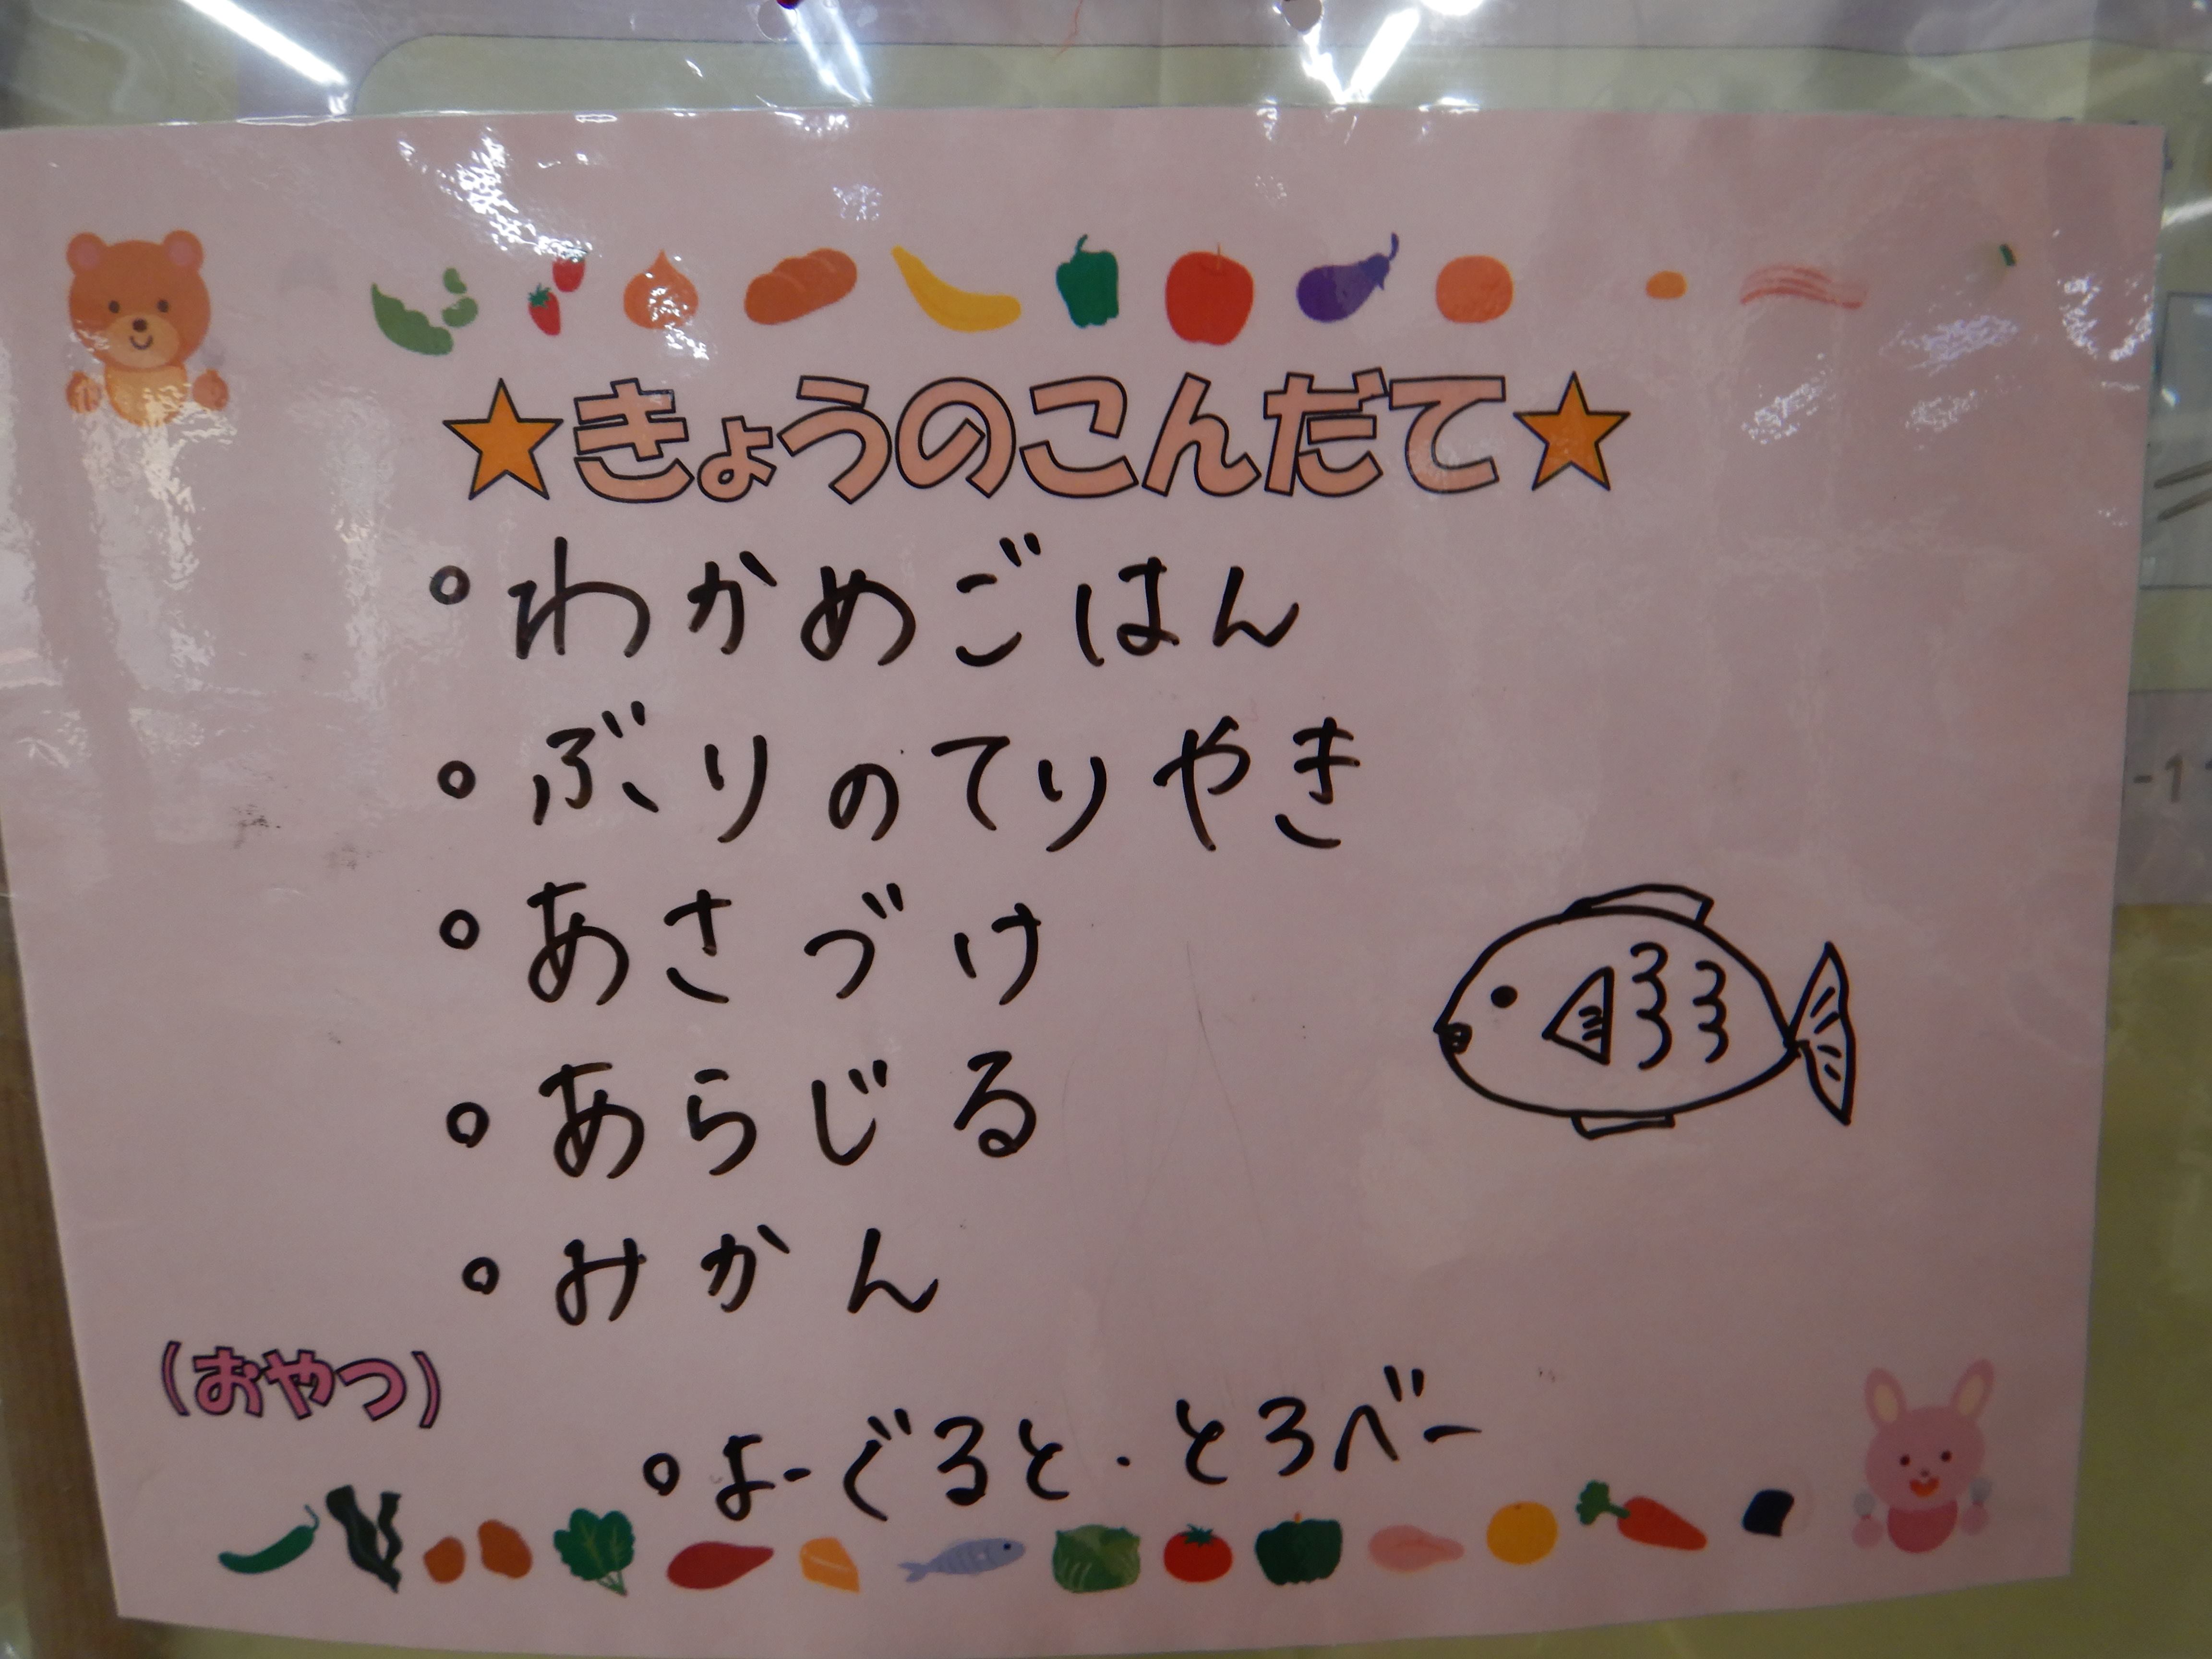 ★きょうのこんだて★
・わかめごはん
・ぶりのてりやき
・あさづけ
・あらじる
・みかん
(おやつ)
・よーぐると・とろべー
-1